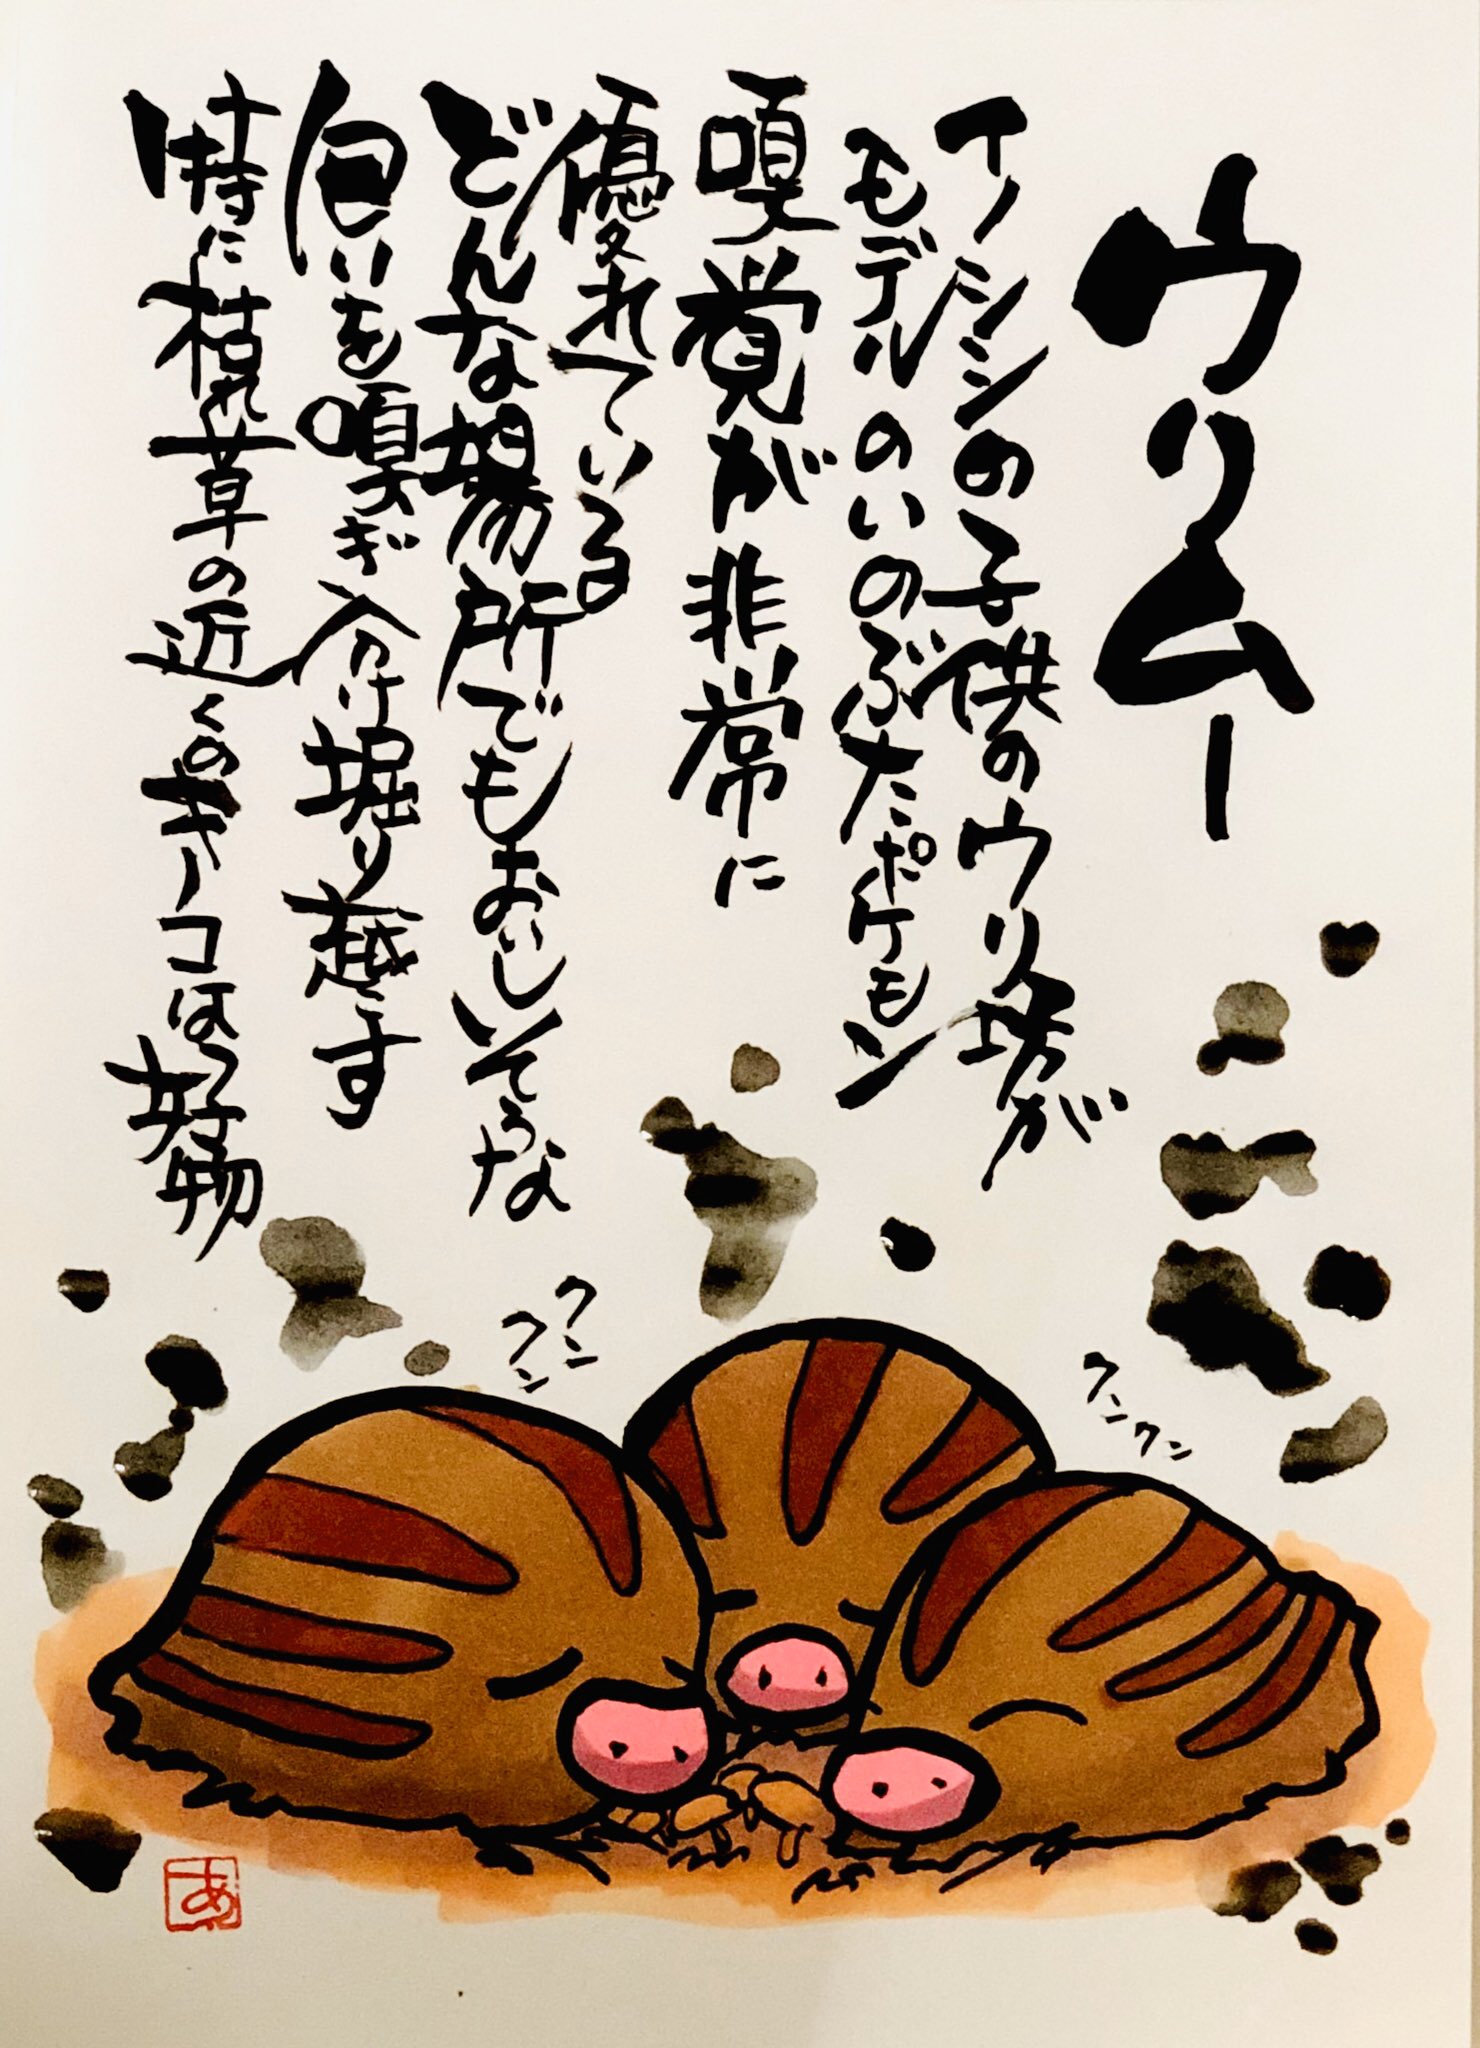 ウリムー
イノシシの子供のウリ坊が
モデルのいのぶたポケモン
嗅覚が非常に
優れている
どんな場所でもおいしそうな
匂いを嗅ぎ分け掘り越こす
特に枯れ草の近くのキノコは大好物
クンクン
クンクン
あめ